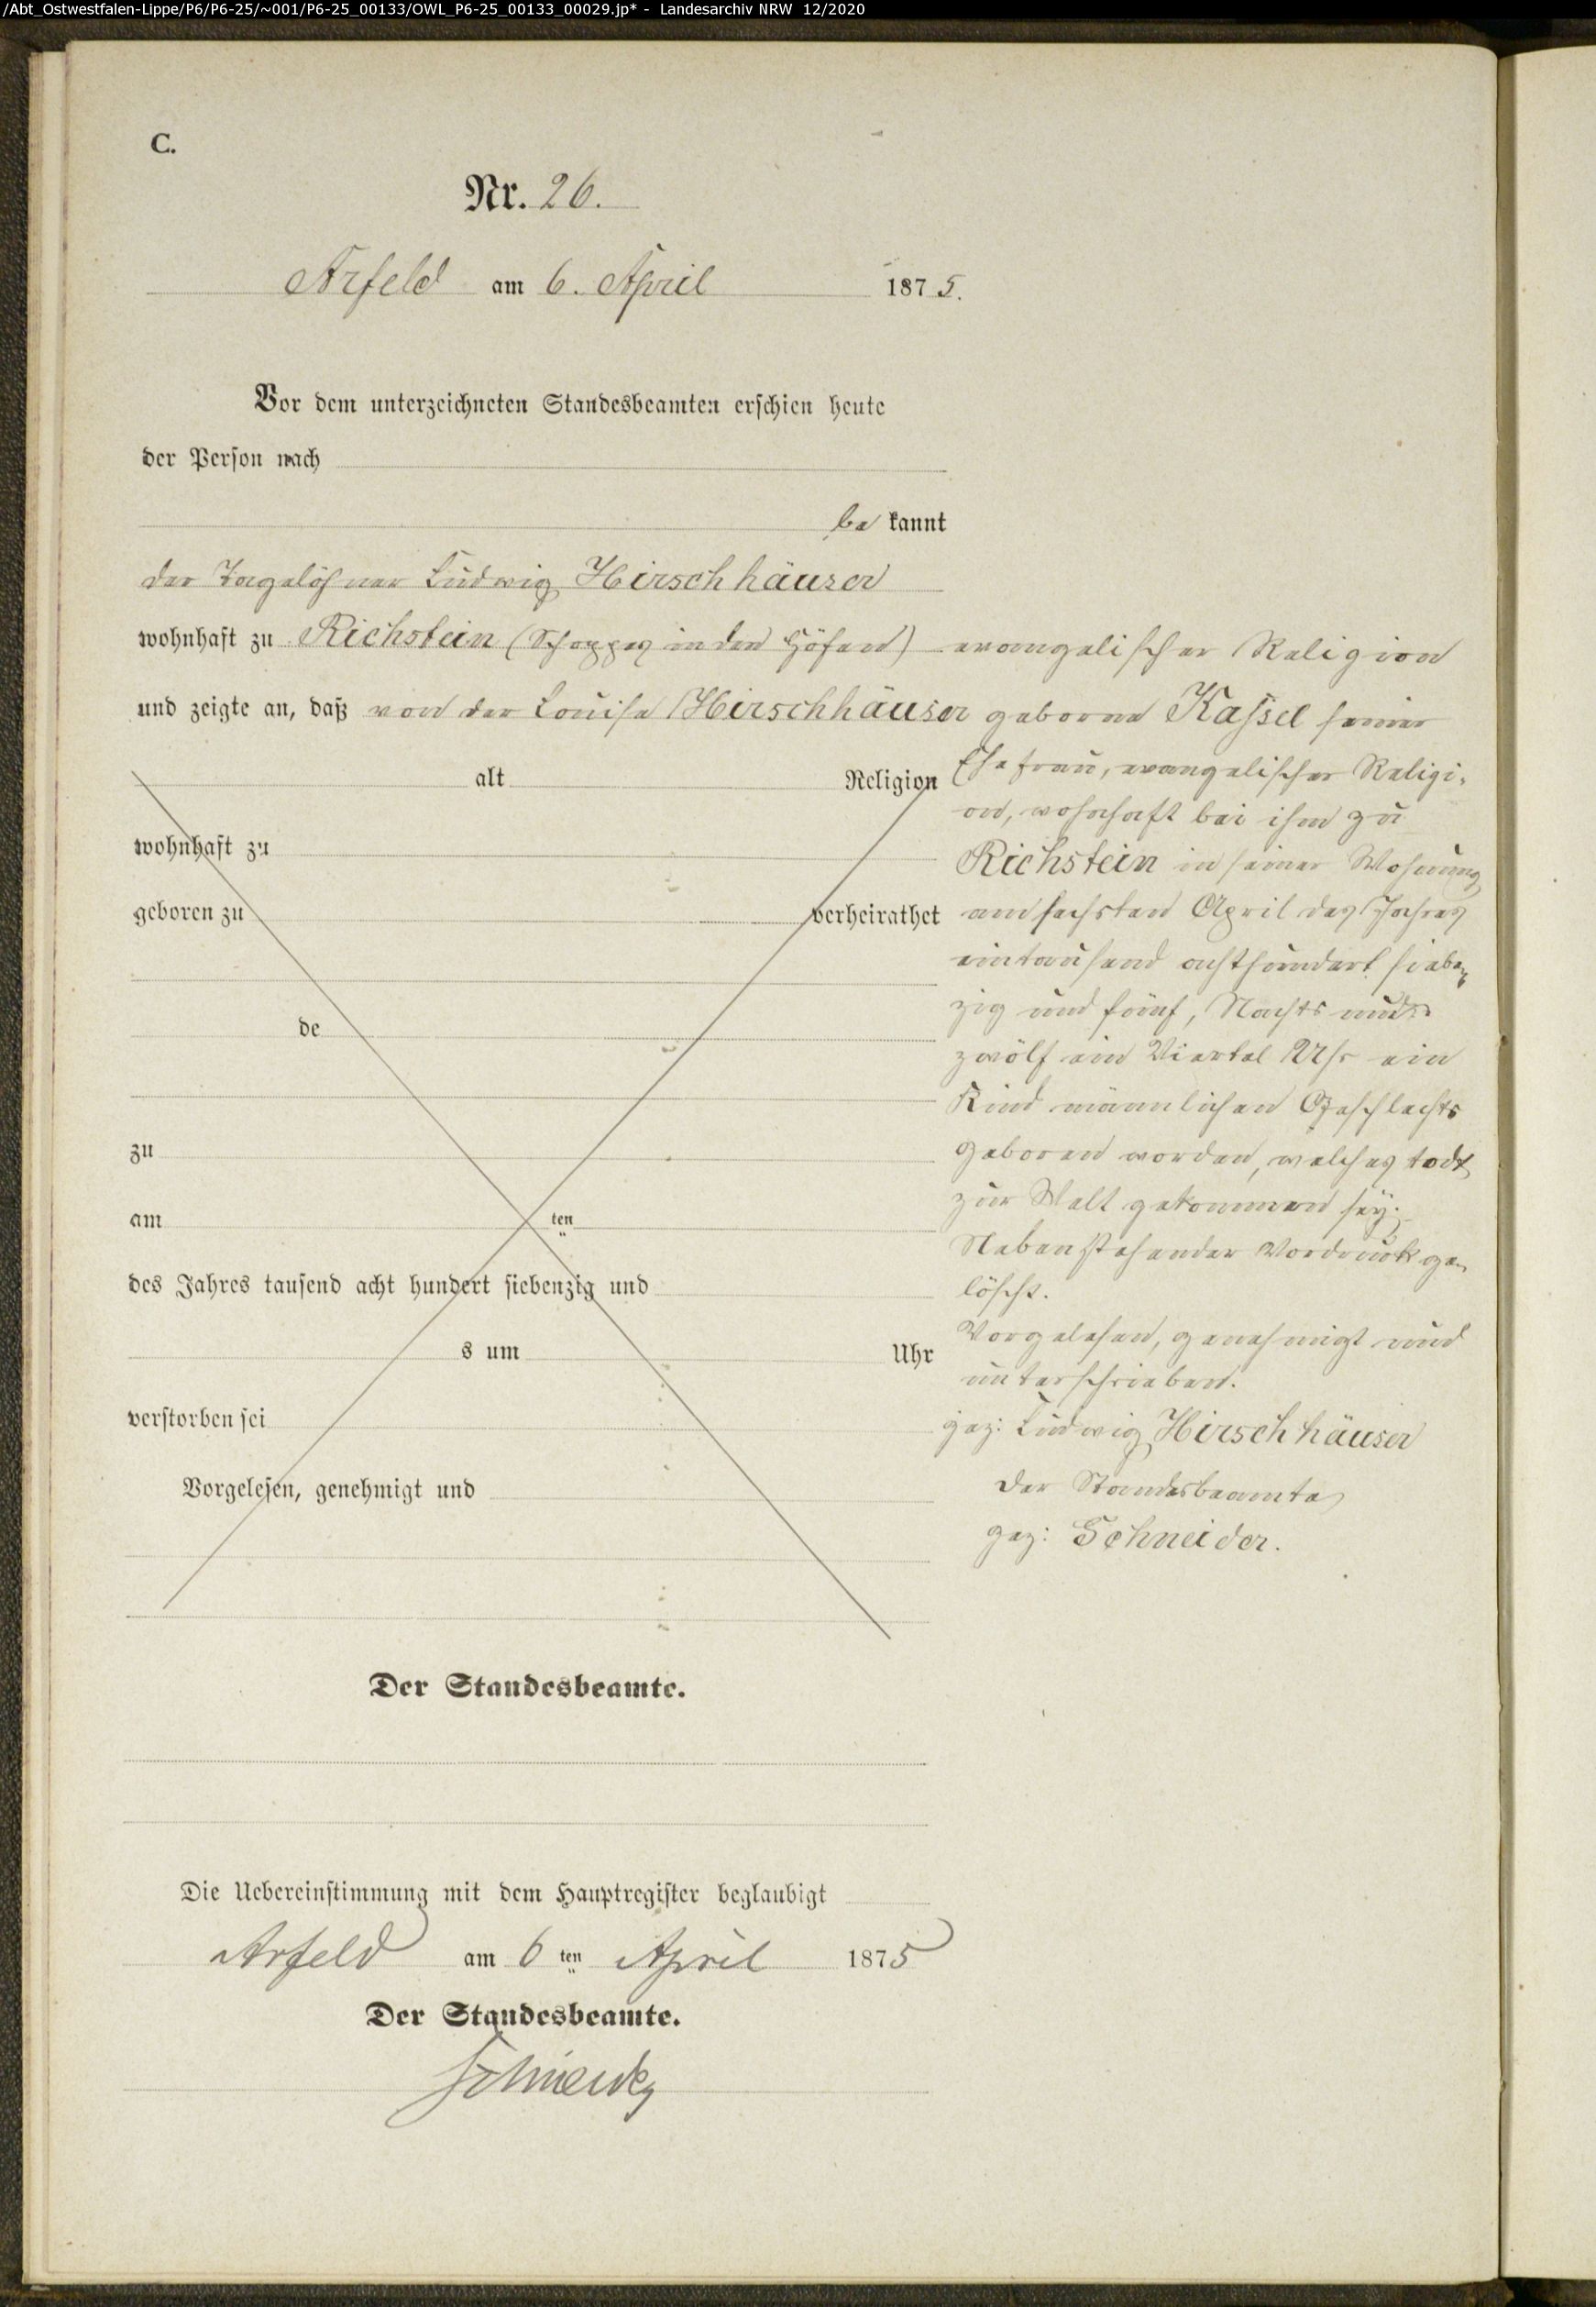 /Abt_Ostwestfalen-Lippe/P6/P6-25/~001/P6-25_00133/OWL_P6-25_00133_00029.jp* - Landesarchiv NRW 12/2020
C.
Nr. 26.
Arfeld am 6. April 1875.
Vor dem unterzeichneten Standesbeamten erschien heute
der Person nach
be kannt
der Tagelöhner Ludwig Hirschhäuser
wohnhaft zu Richstein (Schoppes in den Höfen) evangelischer Religion
und zeigte an, daß von der Louise Hirschhäuser geborne Kassel seiner
alt Religion
Ehefrau, evangelischer Religi-
on, wohnhaft bei ihm zu
wohnhaft zu
Richstein in seiner Wohnung
geboren zu verheirathet
am sechsten April des Jahres
eintausend achthundert sieben
zig und fünf, Nachts um
de
zwölf ein Viertel Uhr ein
Kind männlichen Geschlechts
zu
geboren worden, welches todt
zur Welt gekommen sey.
am ten
Nebenstehender Vordruck ge-
des Jahres tausend acht hundert siebenzig und
löscht.
s um Uhr
Vorgelesen, genehmigt und
unterschrieben.
verstorben sei
gez: Ludwig Hirschhäuser
Vorgelesen, genehmigt und
Der Standesbeamte
gez: Schneider.
Der Standesbeamte.
Die Uebereinstimmung mit dem Hauptregister beglaubigt
Arfeld am 6 ten April 1875
Der Standesbeamte.
Schneider